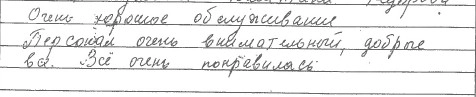 Очень хорошое обслуживание
Персонал очень внимательный, добрые
ва. Всё очень понравилась